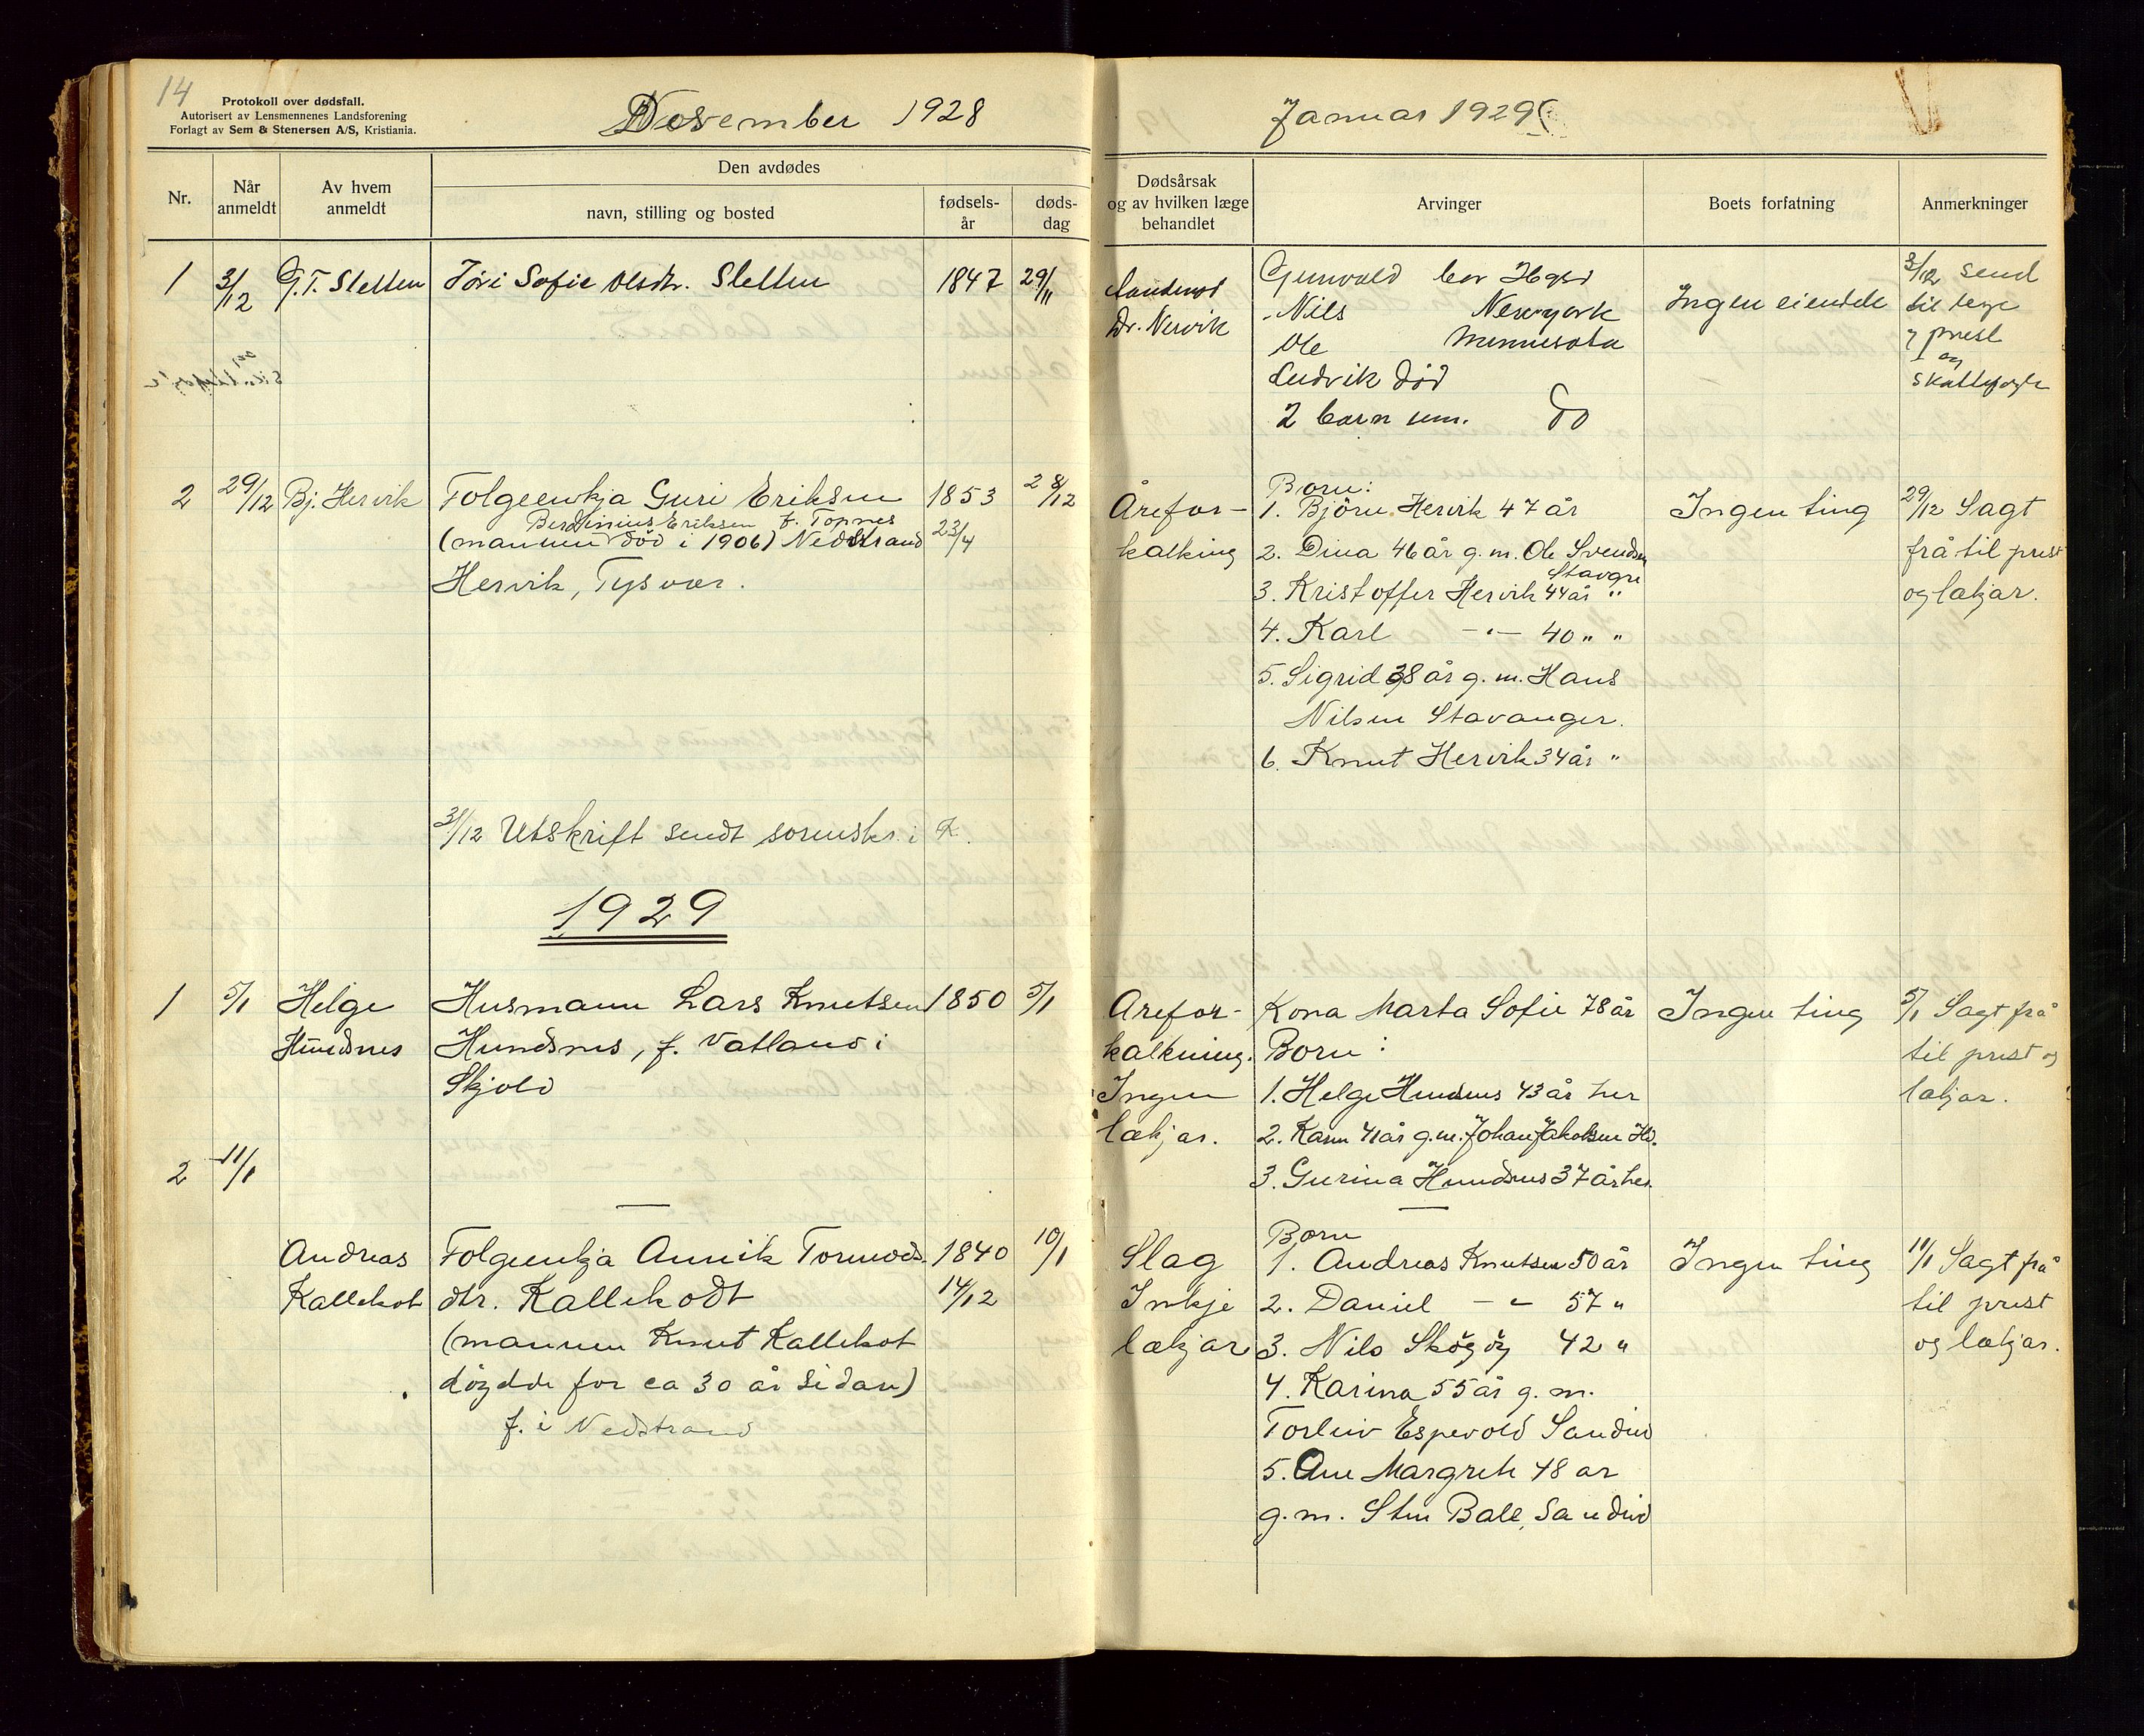 14
Protokoll over dødsfall.
Autorisert av Lensmennenes Landsforening
Forlagt av Sem & Stenersen A/S, Kristiania.
Desember 1928
Januar 1929
Nr.
Når anmeldt
Av hvem anmeldt
Den avdødes
navn, stilling og bosted
fødsels-år
døds-dag
Dødsårsak og av hvilken læge behandlet
Arvinger
Boets forfatning
Anmerkninger
1 3/12 G.T. Sletten Sofie Olsdtr. Sletten 1847 29/11
Dr. Nervik
Gunvald
Nils Newyork
Ole Minnesota
Ludvik død
2 barn um. do
Ingen eiendele
3/12 send
til lege
og prest
og
skattefogde
2 29/12 Bj. Hervik Folgeenkja Guri Eriksen 1853 28/12
Berdinius Eriksen f. Topnes
(mannen død i 1906) Nedstrand 23/4
Hervik, Tysvær.
Årefor-
kalking
Born:
1. Björn Hervik 47 år
2. Dina 46 år g. m. Ole Svendsen
Stavgr
3. Kristoffer Hervik 44 år "
4. Karl -"- 40 " "
5. Sigrid 38 år g. m. Hans
Nilsen Stavanger.
6. Knut Hervik 34 år "
Ingen ting
29/12 Sagt
frå til prest
og lækjar.
31/12 Utskrift sendt sorenskr. i K.
1929
1 5/1 Helge Husmann Lars Knutsen 1850 5/1
Hundsnes Hundsnes, f. Vatland i
Skjold
Årefor-
kalkning.
Ingen
lækjar.
Kona Marta Sofie 78 år
Born:
1. Helge Hundsnes 43 år her
2. Karen 41 år g.m. Johan Jakobsen Hd.
3. Gurina Hundsnes 37 år her.
Ingen ting
5/1 Sagt frå
til prest og
lækjar.
2 11/1
Andreas Folgeenkja Annik Tormods- 1840 10/1
Kallekot dtr. Kallekodt 14/12
(mannen Knut Kallekot
döydde for ca 30 år sidan)
f. i Nedstrand
Slag
Inkje
lækjar
Born
1. Andreas Knutsen 50 år
2. Daniel -"- 57 "
3. Nils Skögöy 42 "
4. Karina 55 år g. m.
Torleiv Espevold Sandeid
5. Ane Margrete 48 ar
g. m. Sten Bale, Sandeid
Ingen ting
11/1 Sagt frå
til prest
og lækjar.